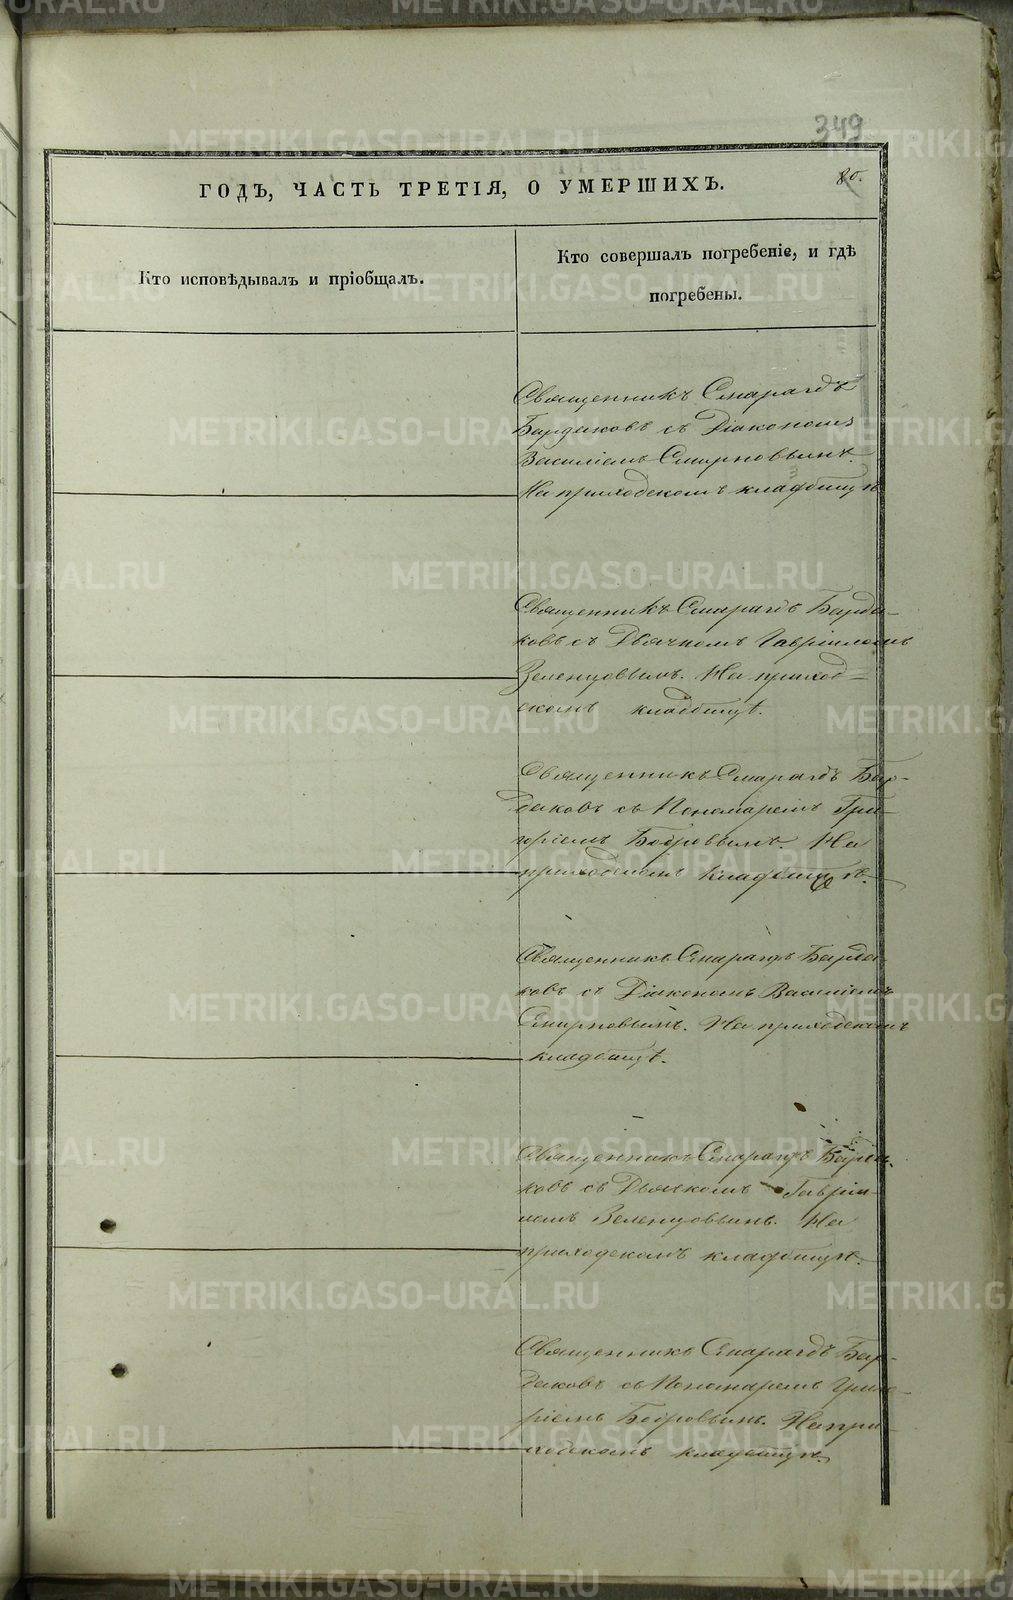 349
80.
ГОДЪ, ЧАСТЬ ТРЕТІЯ, О УМЕРШИХЪ.
Кто исповѣдывалъ и пріобщалъ.
Кто совершалъ погребеніе, и гдѣ
погребены.
Священникъ Смарагдъ
Бардаковъ съ Діакономъ
Василіемъ Смирновымъ.
На приходскомъ кладбищѣ
Священникъ Смарагдъ Барда-
ковъ съ Дьячкомъ Гавріиломъ
Зеленцовымъ. На приход-
скомъ кладбищѣ.
Священникъ Смарагдъ Бар-
даковъ съ Пономаремъ Гри-
горіемъ Бобровымъ. На
приходскомъ кладбищѣ.
Священникъ Смарагдъ Барда-
ковъ съ Діакономъ Василіемъ
Смирновымъ. На приходскомъ
кладбищѣ.
Священникъ Смарагдъ Барда-
ковъ съ Дьячкомъ Гавріи-
ломъ Зеленцовымъ. На
приходскомъ кладбищѣ.
Священникъ Смарагдъ Бар-
даковъ съ Пономаремъ Григо-
ріемъ Бобровымъ. На при-
ходскомъ кладбищѣ.
METRIKI.GASO-URAL.RU